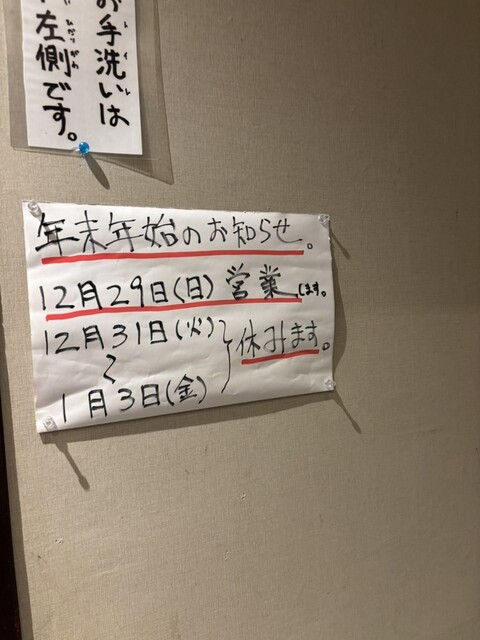 お手洗いは
左側です。
ひだりがわ
年末年始のお知らせ。
12月29日(日)営業します。
12月31日(火)
〜
1月3日(金)
休みます。